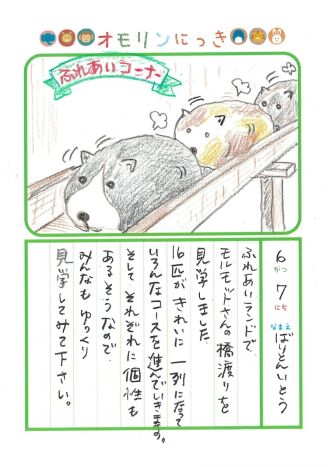 オモリンにっき
ふれあいコーナー
6がつ7にち なまえ ばりとんいとう
ふれあいランドで、
モルモットさんの橋渡りを
見学しました
16匹がきれいに一列になって
いろんなコースを進んでいきます。
そして それぞれに個性も
あるそうなので
みんなも ゆっくり
見学してみて下さい。